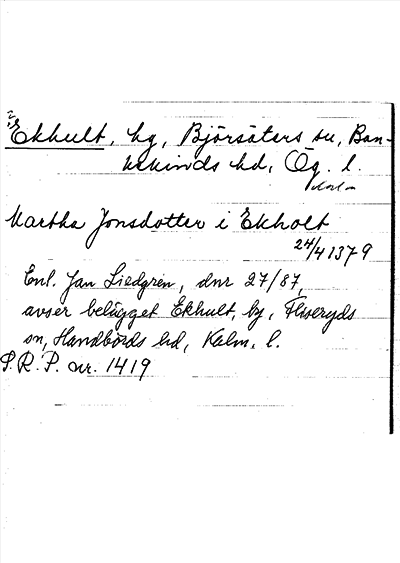 Ekhult, hg, Björsäters sn, Ban-
kekinds hd, Ög. l.
Martha Jonsdotter i Ekholt
24/4 1379
Enl. Jan Liedgren, dnr 27/87,
avser belägget Ekhult, by, Fliseryds
sn, Handbörds hd, Kalm. l.
S. R. P. nr. 1419